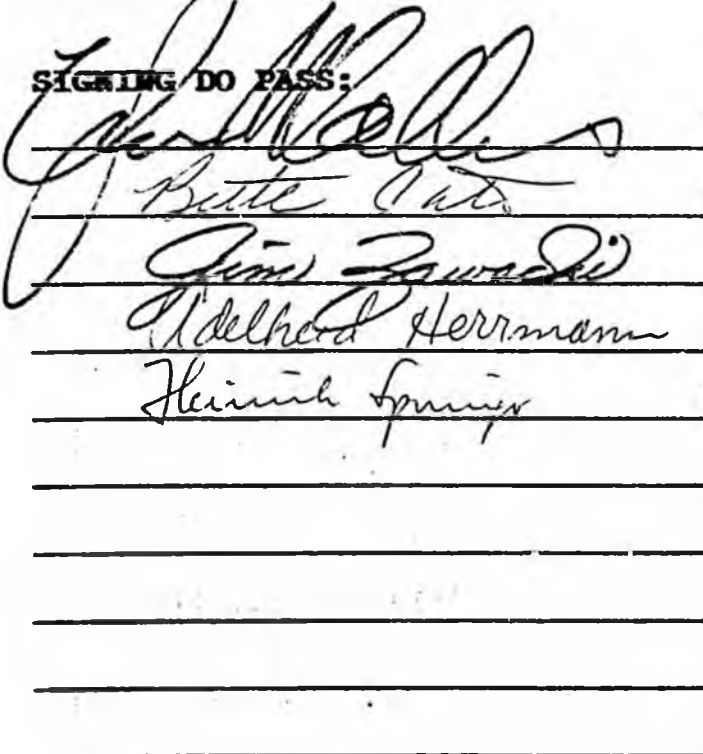 SIGNING DO PASS:
Bette Cato
Jim Zawacki
Adelheid Herrmann
Heinrich Springer